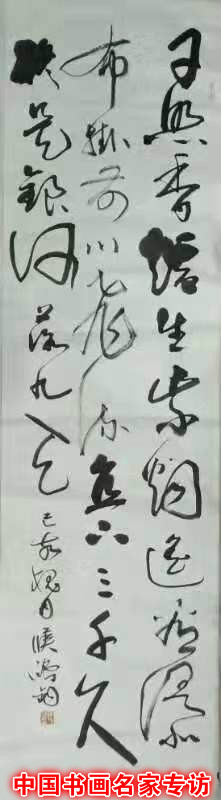 日照香爐生紫烟遙看瀑
布掛前川飛流直下三千尺
疑是銀河落九天 己亥槐月
中国书画名家专访